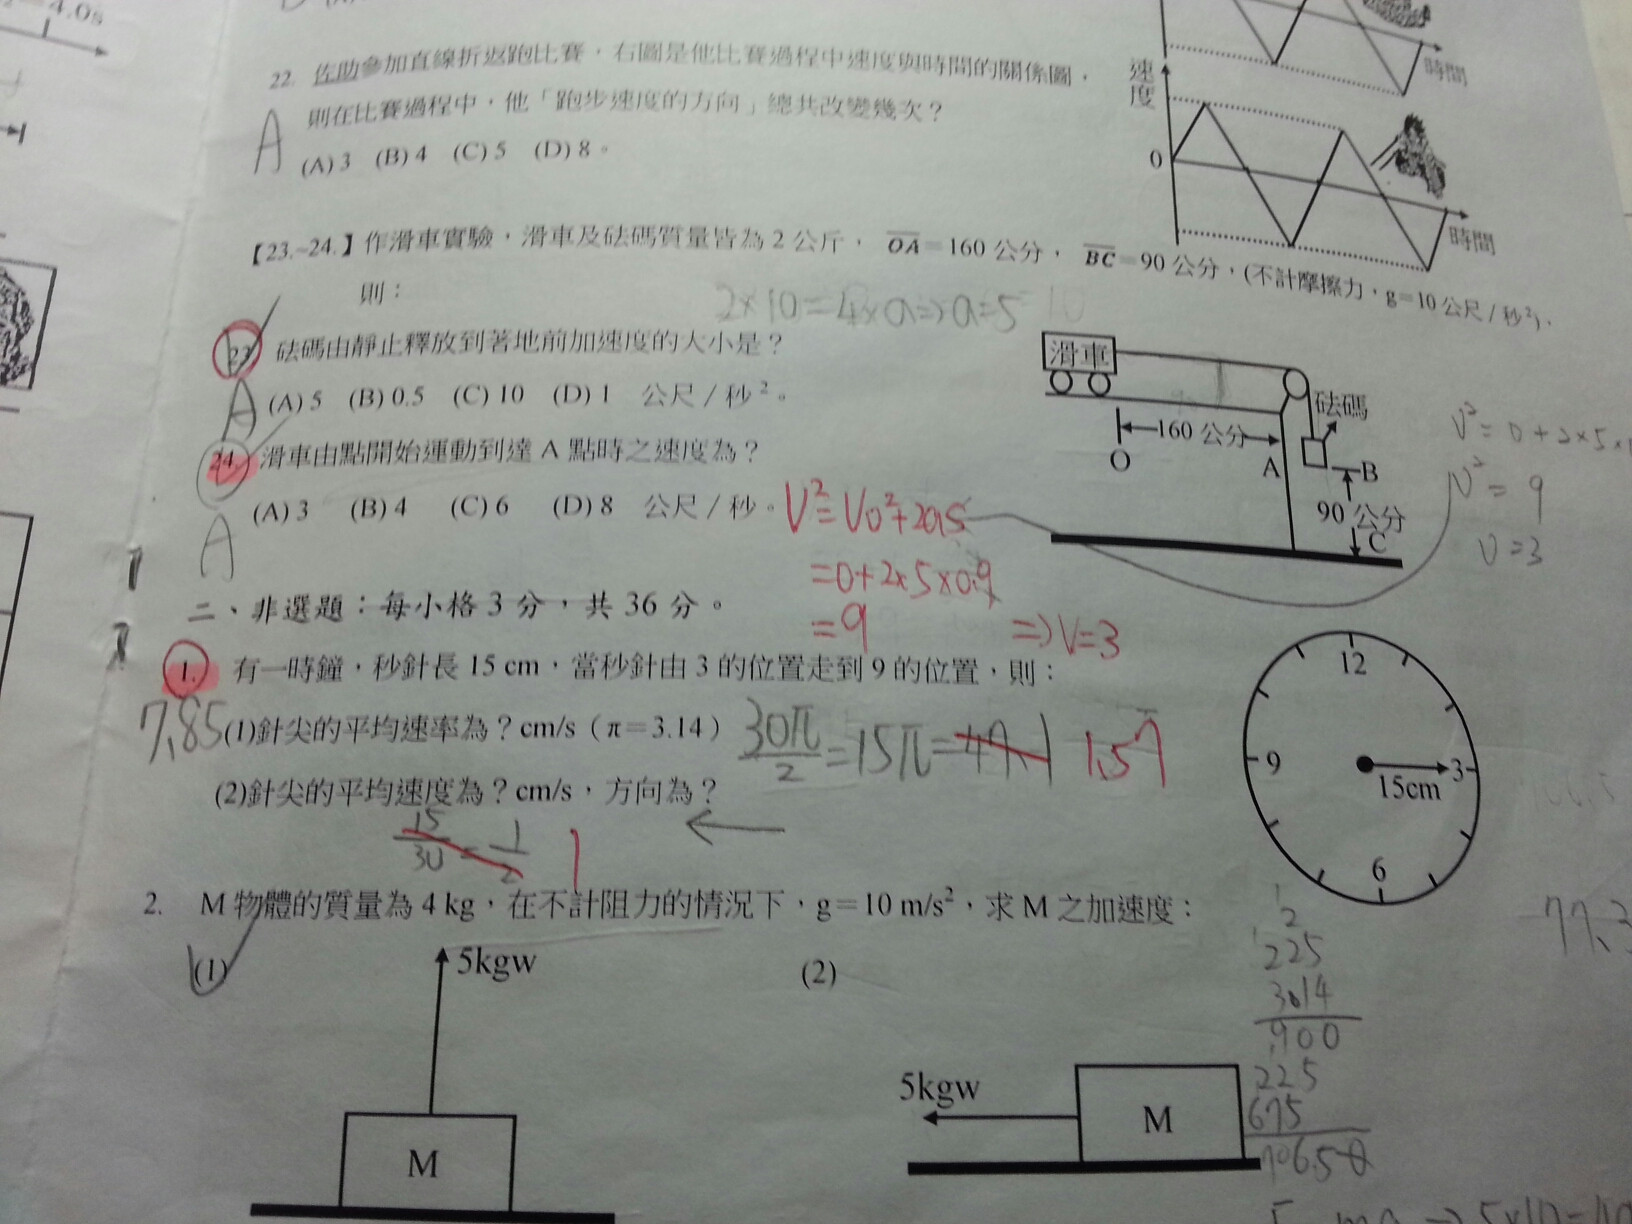 4.0s
時間
22. 佐助參加直線折返跑比賽，右圖是他比賽過程中速度與時間的關係圖，
則在比賽過程中，他「跑步速度的方向」總共改變幾次？
A
(A) 3 (B) 4 (C) 5 (D) 8。
速度
0
時間
【23.~24.】作滑車實驗，滑車及砝碼質量皆為 2 公斤， OA＝160 公分， BC＝90 公分，(不計摩擦力，g＝10 公尺／秒²)．
則：
2×10=4×a⇒a=5
23 砝碼由靜止釋放到著地前加速度的大小是？
A (A) 5 (B) 0.5 (C) 10 (D) 1 公尺／秒²。
24. 滑車由點開始運動到達 A 點時之速度為？
A (A) 3 (B) 4 (C) 6 (D) 8 公尺／秒。
滑車
砝碼
160 公分
O
A
B
90 公分
C
V²=V0²+2as
=0+2×5×0.9
=9 ⇒V=3
V²=0+2×5×
V²=9
V=3
二、非選題：每小格 3 分，共 36 分。
1. 有一時鐘，秒針長 15 cm，當秒針由 3 的位置走到 9 的位置，則：
7.85 (1)針尖的平均速率為？cm/s（π＝3.14） 30π/2=15π=47.1 1.57
(2)針尖的平均速度為？cm/s，方向為？
15/30=1/2 1 ←
12
9
3
15cm
6
2. M 物體的質量為 4 kg，在不計阻力的情況下，g＝10 m/s²，求 M 之加速度：
(1)
5kgw
M
(2)
5kgw
M
225
3.14
900
225
675
706.50
77.3